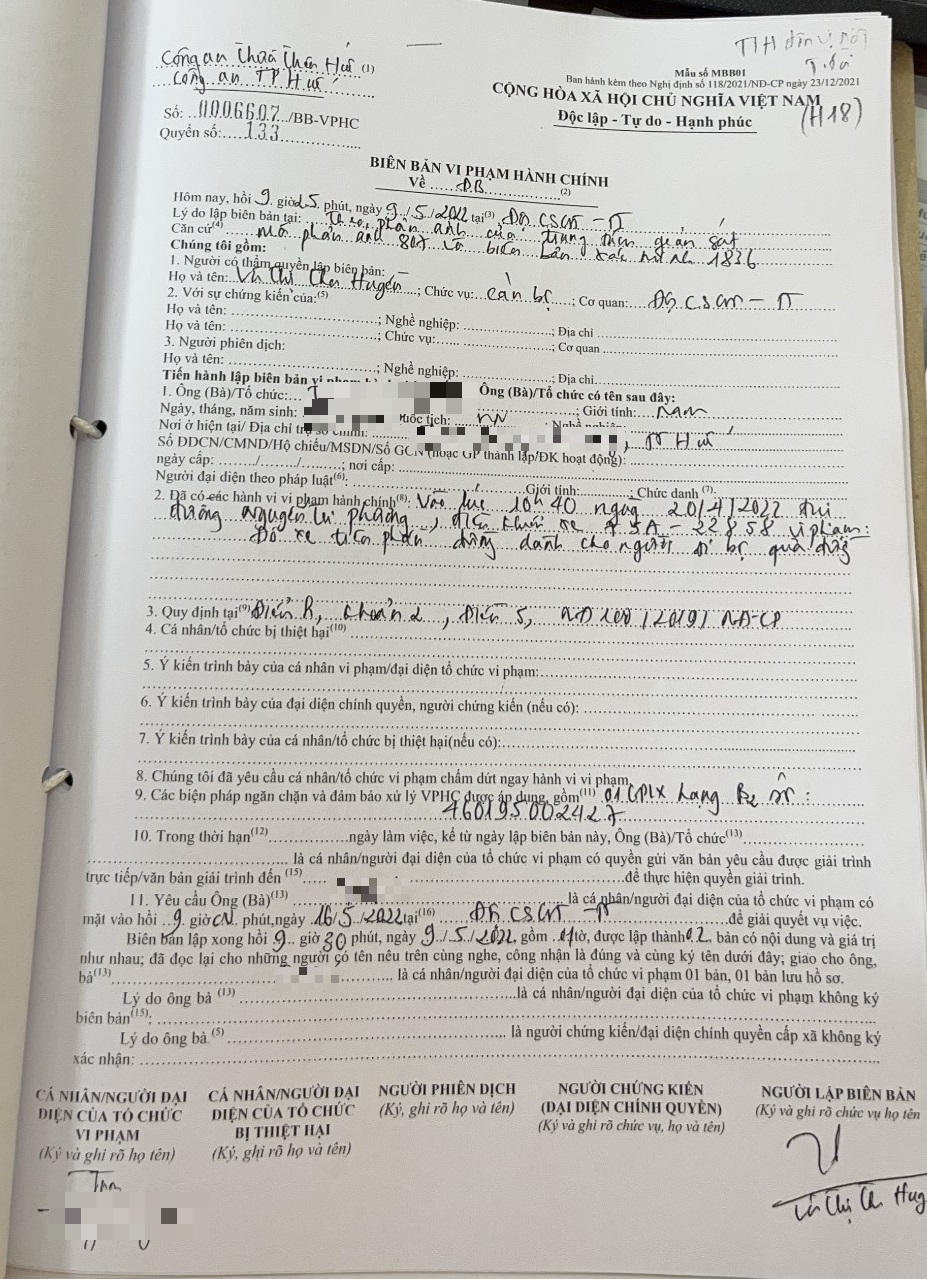 Công an Thừa Thiên Huế (1)
Công an TP Huế
TTH đơn vị
Mẫu số MBB01
Ban hành kèm theo Nghị định số 118/2021/NĐ-CP ngày 23/12/2021
CỘNG HÒA XÃ HỘI CHỦ NGHĨA VIỆT NAM
(H18)
Độc lập - Tự do - Hạnh phúc
Số: 0006607/BB-VPHC
Quyển số: 133
BIÊN BẢN VI PHẠM HÀNH CHÍNH
Về ĐB (2)
Hôm nay, hồi 9 giờ 25 phút, ngày 9/5/2022 tại(3)
Lý do lập biên bản tại: Theo phản ánh của trung tâm giám sát
Căn cứ(4) mã phản ánh 807 và biên bản xác minh 1836
Chúng tôi gồm:
1. Người có thẩm quyền lập biên bản:
Họ và tên: Thị Huyền; Chức vụ: cán bộ; Cơ quan:
2. Với sự chứng kiến của:(5)
Họ và tên: ; Nghề nghiệp: ; Địa chỉ
Họ và tên: ; Chức vụ: ; Cơ quan
3. Người phiên dịch:
Họ và tên: ; Nghề nghiệp: ; Địa chỉ
Tiến hành lập biên bản vi Ông (Bà)/Tổ chức có tên sau đây:
1. Ông (Bà)/Tổ chức: T
Ngày, tháng, năm sinh: quốc tịch: VN ; Giới tính: Nam
Nơi ở hiện tại/ Địa chỉ trụ sở chính: Nghề nghiệp: , TP Huế
Số ĐDCN/CMND/Hộ chiếu/MSDN/Số GCN (hoặc GP thành lập/ĐK hoạt động):
ngày cấp: / / ; nơi cấp:
Người đại diện theo pháp luật(6): Giới tính: ; Chức danh (7):
2. Đã có các hành vi vi phạm hành chính(8): Vào lúc 10h40 ngày 20/4/2022 tại
đường Nguyễn Tri Phương, điều khiển xe 75A-22858 vi phạm:
Đỗ xe trên phần đường dành cho người đi bộ qua đường
3. Quy định tại(9) Điểm h, khoản 2, Điều 5, NĐ 100/2019/NĐ-CP
4. Cá nhân/tổ chức bị thiệt hại(10)
5. Ý kiến trình bày của cá nhân vi phạm/đại diện tổ chức vi phạm:
6. Ý kiến trình bày của đại diện chính quyền, người chứng kiến (nếu có):
7. Ý kiến trình bày của cá nhân/tổ chức bị thiệt hại(nếu có):
8. Chúng tôi đã yêu cầu cá nhân/tổ chức vi phạm chấm dứt ngay hành vi vi phạm.
9. Các biện pháp ngăn chặn và đảm bảo xử lý VPHC được áp dụng, gồm(11) 01 GPLX hạng B2 số:
460195002427
10. Trong thời hạn(12) ngày làm việc, kể từ ngày lập biên bản này, Ông (Bà)/Tổ chức(13)
là cá nhân/người đại diện của tổ chức vi phạm có quyền gửi văn bản yêu cầu được giải trình
trực tiếp/văn bản giải trình đến (15) để thực hiện quyền giải trình.
11. Yêu cầu Ông (Bà)(13) là cá nhân/người đại diện của tổ chức vi phạm có
mặt vào hồi 9 giờ phút,ngày 16/5/2022tại(16) để giải quyết vụ việc.
Biên bản lập xong hồi 9 giờ 30 phút, ngày 9/5/2022, gồm 01 tờ, được lập thành 02 bản có nội dung và giá trị
như nhau; đã đọc lại cho những người có tên nêu trên cùng nghe, công nhận là đúng và cùng ký tên dưới đây; giao cho ông,
bà(13) là cá nhân/người đại diện của tổ chức vi phạm 01 bản, 01 bản lưu hồ sơ.
Lý do ông bà (13) là cá nhân/người đại diện của tổ chức vi phạm không ký
biên bản(15):
Lý do ông bà (5) là người chứng kiến/đại diện chính quyền cấp xã không ký
xác nhận:
CÁ NHÂN/NGƯỜI ĐẠI
DIỆN CỦA TỔ CHỨC
VI PHẠM
(Ký và ghi rõ họ tên)
CÁ NHÂN/NGƯỜI ĐẠI
DIỆN CỦA TỔ CHỨC
BỊ THIỆT HẠI
(Ký, ghi rõ họ và tên)
NGƯỜI PHIÊN DỊCH
(Ký, ghi rõ họ và tên)
NGƯỜI CHỨNG KIẾN
(ĐẠI DIỆN CHÍNH QUYỀN)
(Ký và ghi rõ chức vụ, họ và tên)
NGƯỜI LẬP BIÊN BẢN
(Ký và ghi rõ chức vụ họ tên